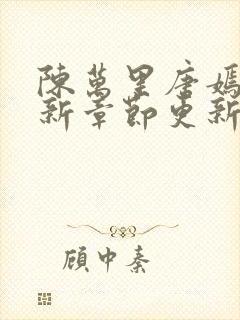 陳萬里唐嫣
新章節更新
顧中秦